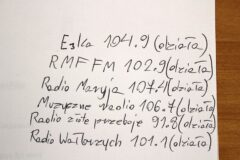 Eska 104.9 (działa)
RMF FM 102.9 (działa)
Radio Maryja 107.4 (działa)
Muzyczne radio 106.7 (działa)
Radio złote przeboje 91.8 (działa)
Radio Wałbrzych 101.1 (działa)